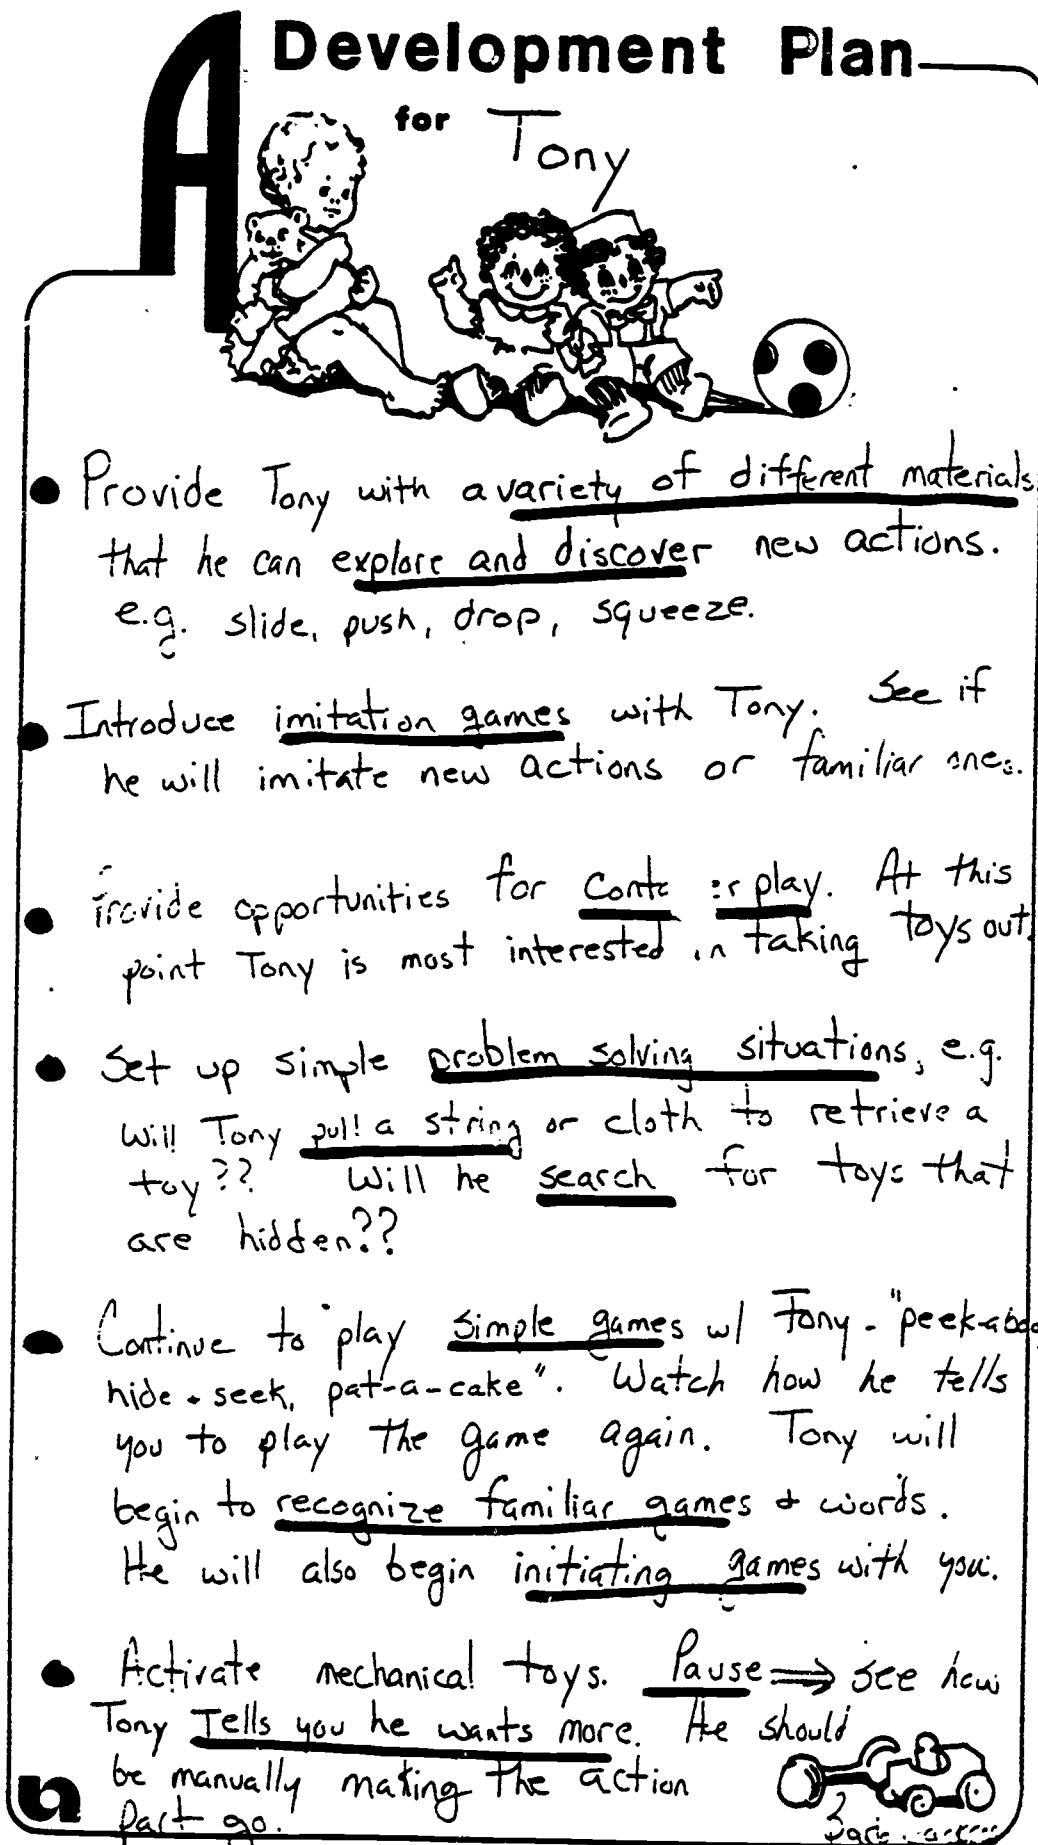 A Development Plan
for Tony
• Provide Tony with a variety of different materials
that he can explore and discover new actions.
e.g. slide, push, drop, squeeze.
• Introduce imitation games with Tony. See if
he will imitate new actions or familiar ones.
• Provide opportunities for play. At this
point Tony is most interested in taking toys out.
• Set up simple problem solving situations, e.g.
Will Tony pull a string or cloth to retrieve a
toy?? Will he search for toys that
are hidden??
• Continue to play simple games w/ Tony - "peek-aboo,
hide + seek, pat-a-cake". Watch how he tells
you to play the game again. Tony will
begin to recognize familiar games + words.
He will also begin initiating games with you.
• Activate mechanical toys. Pause ⇒ see how
Tony Tells you he wants more. He should
be manually making the action
part go.